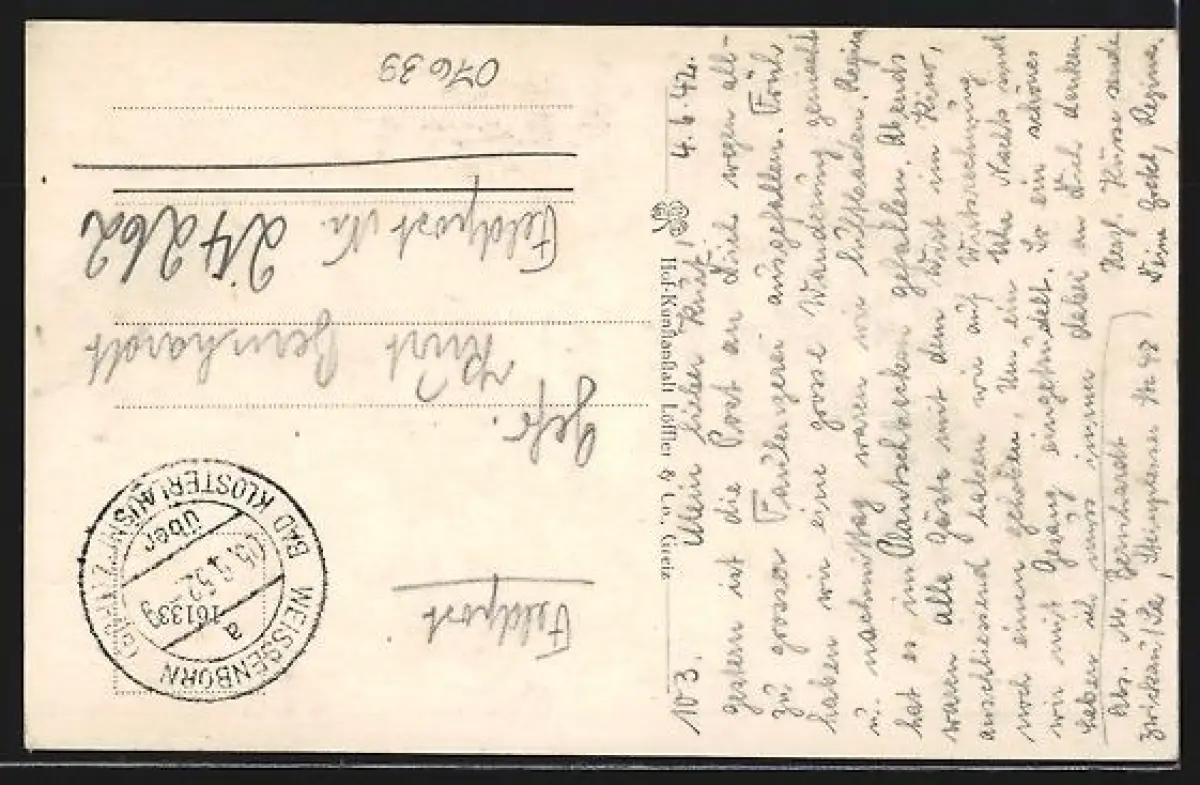 103. 4.6.42.
Mein lieber Kurt,
gestern ist die Post an Dich wegen all-
zu grosser Faulenzerei ausgefallen. Früh
haben wir eine grosse Wanderung gemacht
u. nachmittag waren wir luftbaden. Regina
hat es im Plantschbecken gefallen. Abends
waren alle Gäste mit dem Wirt im Kino,
anschliessend haben wir auf Wirtsrechnung
noch einen gehoben. Um ein Uhr Nachts sind
wir mit Gesang eingetrudelt. So ein schönes
Leben ich muss immer dabei an Dich denken.
Herzl. Küsse sende
Deine Gretel, Regina.
Abs. M. Bernhardt
Zwickau/Sa, Str 48
Hof-Kunstanstalt Löffler & Co., Greiz
Feldpost
Gefr. Kurt Bernhardt
Feldpost Nr. 24262
07639
WEISSENBORN
über
BAD KLOSTERLAUSN
a